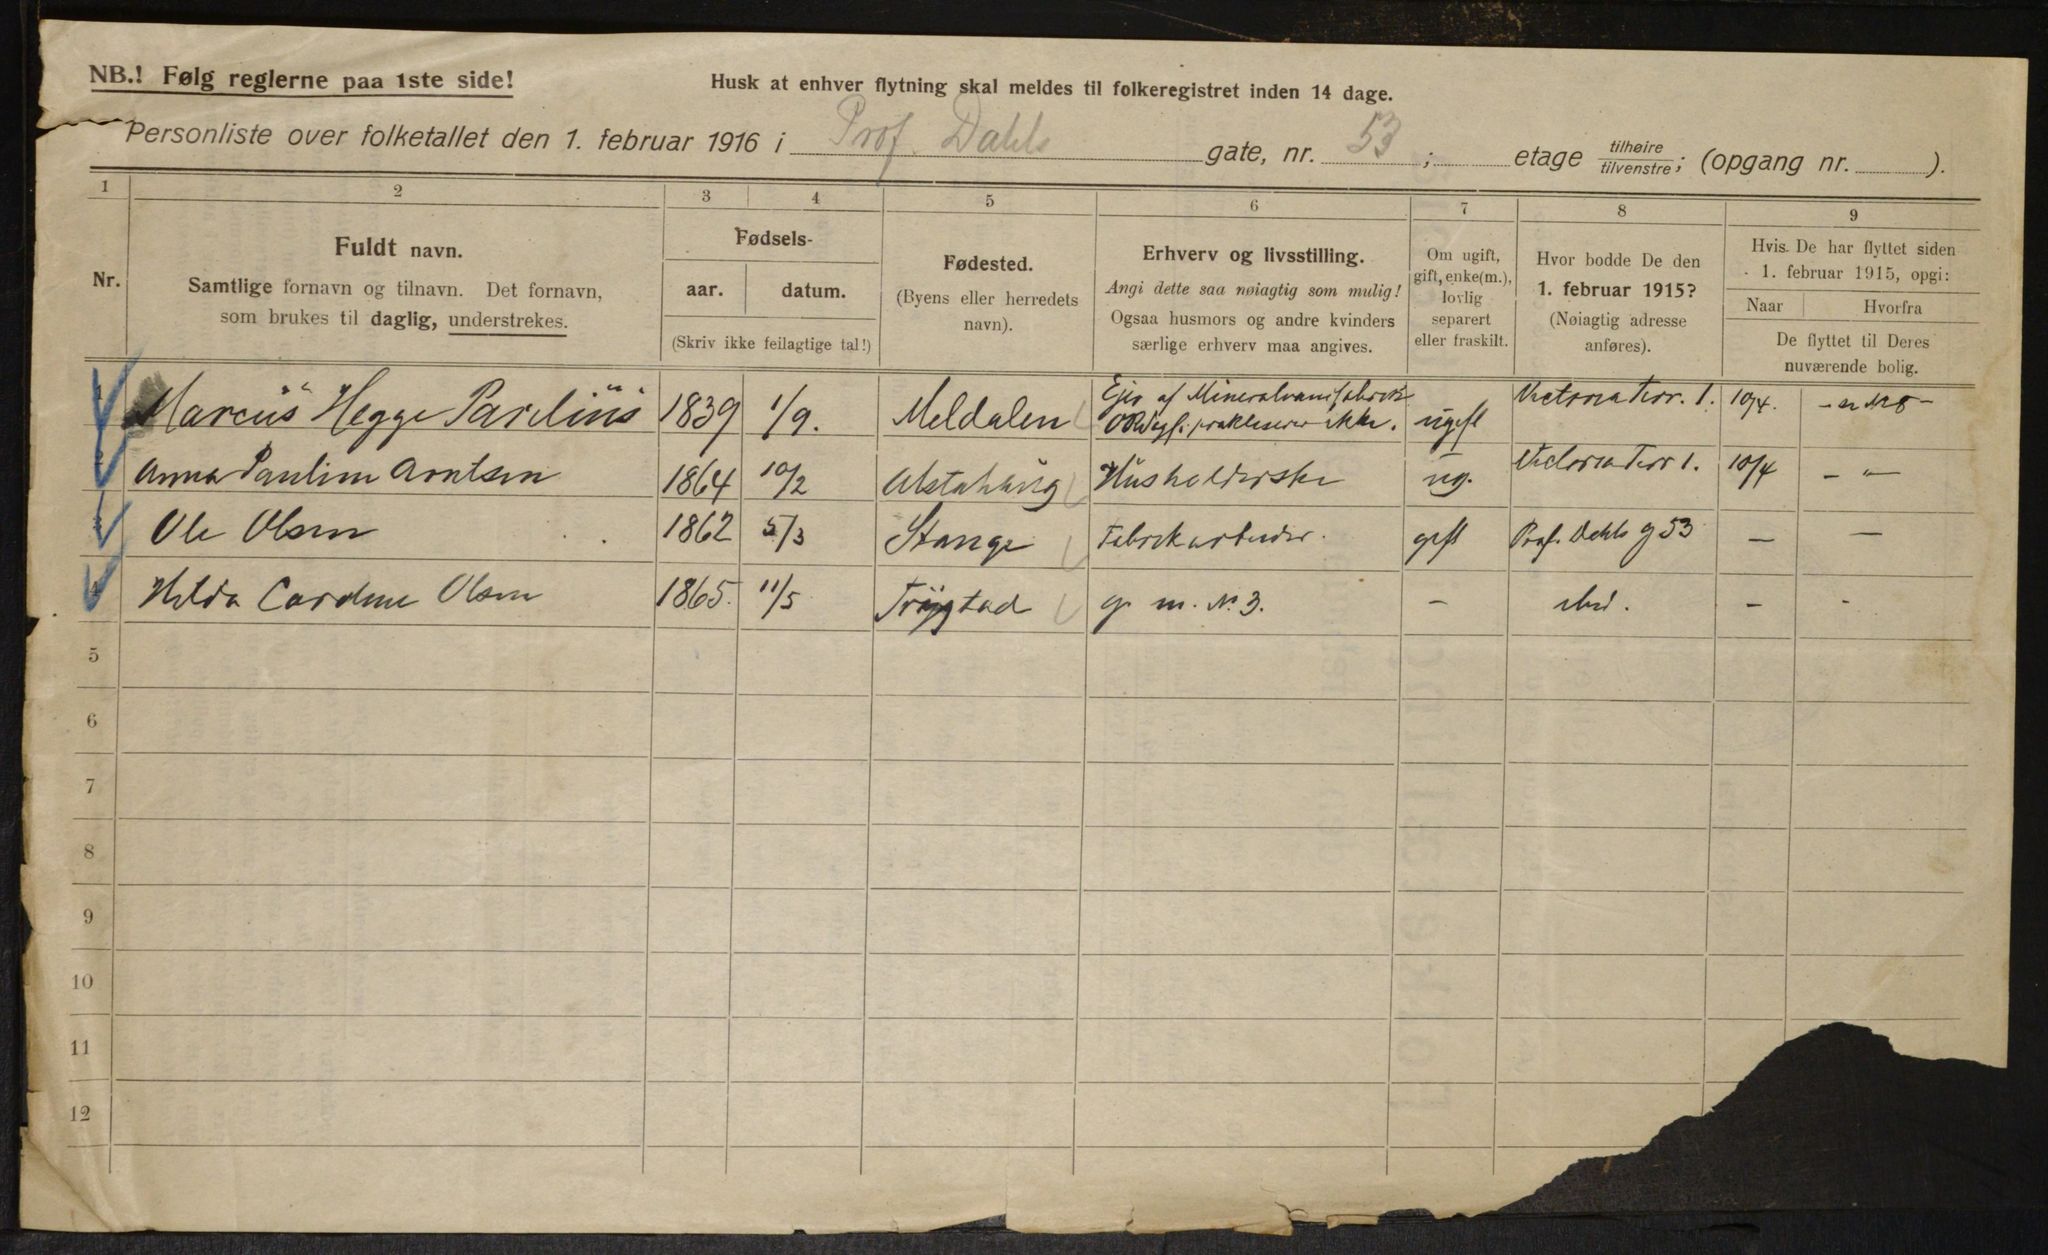 NB.! Følg reglerne paa 1ste side!
Husk at enhver flytning skal meldes til folkeregistret inden 14 dage.
Personliste over folketallet den 1. februar 1916 i Prof. Dahls gate, nr. 53 ; etage tilhøire tilvenstre; (opgang nr. ).
1 2 3 4 5 6 7 8 9
Nr.
Fuldt navn.
Samtlige fornavn og tilnavn. Det fornavn,
som brukes til daglig, understrekes.
Fødsels-
aar. datum.
(Skriv ikke feilagtige tal!)
Fødested.
(Byens eller herredets
navn).
Erhverv og livsstilling.
Angi dette saa nøiagtig som mulig!
Ogsaa husmors og andre kvinders
særlige erhverv maa angives.
Om ugift,
gift, enke(m.),
lovlig
separert
eller fraskilt.
Hvor bodde De den
1. februar 1915?
(Nøiagtig adresse
anføres).
Hvis De har flyttet siden
1. februar 1915, opgi:
Naar Hvorfra
De flyttet til Deres
nuværende bolig.
Marcus Hegge Parelius 1839 1/9. Meldalen Ejer af Mineralvandfabrik ikke. ugift Victoria Terr. 1. 10/4.
Anna Pauline Arntsen 1864 10/2 Alstahaug Husholderske ug. Victoria Terr 1. 10/4 - " -
Ole Olsen 1862 5/3 Stange Fabrikarbeider. gift Prof. Dahls g 53 - -
Hilda Cardine Olsen 1865. 11/5 Trygstad g. m. N. 3. - ibid. - -
5
6
7
8
9
10
11
12